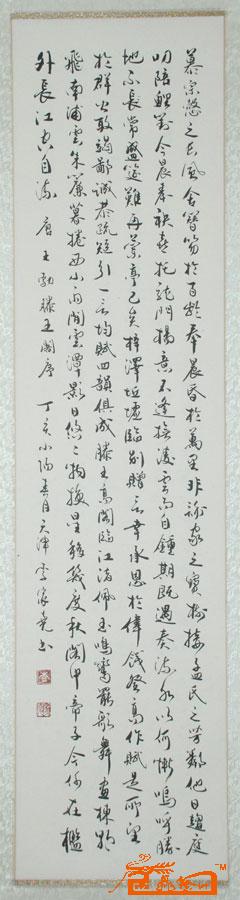 慕宗愨之長風舍簪笏於百齡奉晨昏於萬里非謝家之寶樹接孟氏之芳鄰他日趨庭
叨陪鯉對今晨奉袂喜托龍門楊意不逢撫凌雲而自鍾期既遇奏流水以何慚嗚呼勝
地不長常盛筵難再蘭亭已矣梓澤丘墟臨別贈言幸承恩於偉餞登高作賦是所望
於群公敢竭鄙誠恭疏短引一言均賦四韻俱成滕王高閣臨江渚佩玉鳴鸞罷歌舞畫棟朝
飛南浦雲朱簾暮捲西山雨閒雲潭影日悠悠物換星移幾度秋閣中帝子今何在檻
外長江空自流 唐王勃滕王閣序 丁亥小陽春月天津李家堯書